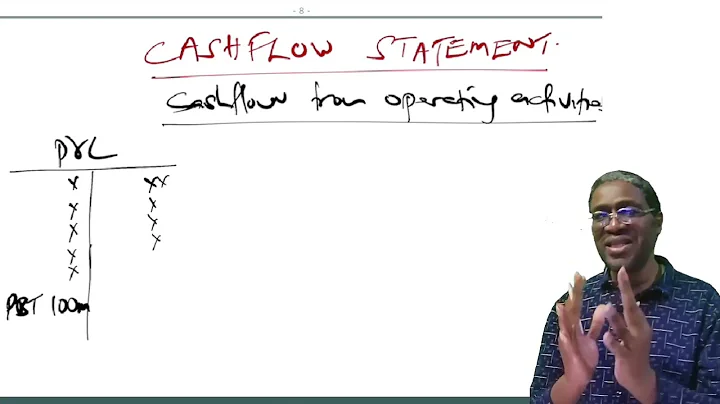 - 8 -
CASHFLOW STATEMENT.
Cashflow from operating activitie
P&L
x xx
x x
x x
x x
x
PBT 100m